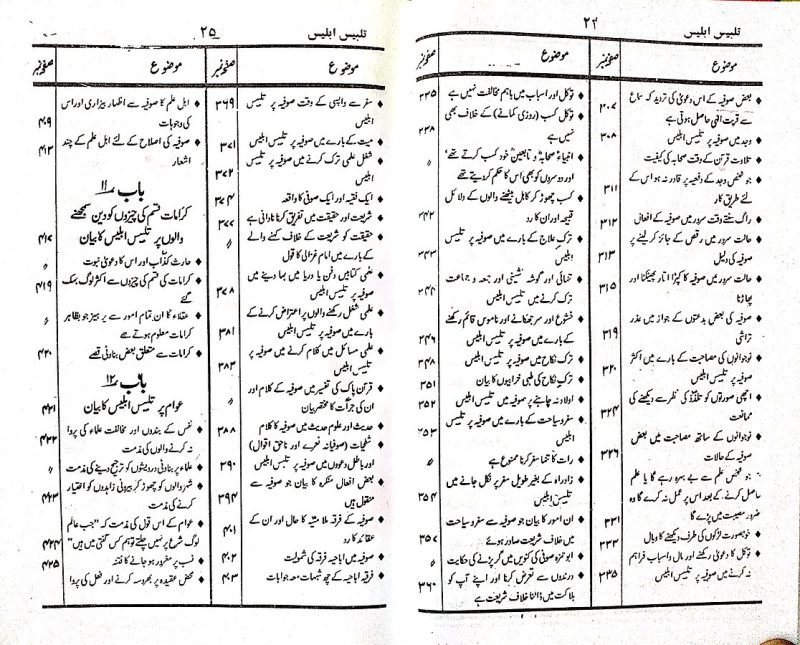 تلبیس ابلیس
۲۴
موضوع
صفحہ نمبر
بعض صوفیہ کے اس دعویٰ کی تردید کہ سماع
سے قربت الٰہی حاصل ہوتی ہے
۳۰۷
وجد میں صوفیہ پر تلبیس ابلیس
۳۰۸
تلاوت قرآن کے وقت صحابہ کی کیفیت
جو شخص وجد کے دفعیہ پر قادر نہ ہو اس کے
لئے طریق کار
۳۱۱
راگ سنتے وقت سرور میں صوفیہ کے افعال
۳۱۲
حالت سرور میں رقص کے جائز کر لینے پر
صوفیہ کی دلیل
۳۱۳
حالت سرور میں صوفیہ کا کپڑا اتار پھینکنا اور
پھاڑنا
۳۱۵
صوفیہ کی بعض بدعتوں کے جواز میں عذر
تراشی
۳۱۹
نوجوانوں کی مصاحبت کے بارے میں اکثر
صوفیہ پر تلبیس ابلیس
۳۲۰
اچھی صورتوں کو تلذذ کی نظر سے دیکھنے کی
ممانعت
۳۲۴
نوجوانوں کے ساتھ مصاحبت میں بعض
صوفیہ کے حالات
۳۲۶
جو شخص علم سے بے بہرہ رہے گا یا علم
حاصل کرنے کے بعد اس پر عمل نہ کرے گا وہ
ضرور مصیبت میں پڑے گا
۳۳۱
خوبصورت لڑکوں کی طرف دیکھنے کا وبال
۳۳۳
توکل کا دعویٰ رکھنے اور مال و اسباب فراہم
نہ کرنے میں صوفیہ پر تلبیس ابلیس
۳۳۵
موضوع
صفحہ نمبر
توکل اور اسباب میں باہم مخالفت نہیں ہے
۳۳۵
توکل کسب (روزی کمانے) کے خلاف بھی
نہیں ہے
۳۳۸
انبیاءؑ صحابہؓ و تابعینؒ خود کسب کرتے تھے
اور دوسروں کو بھی اس کا حکم کرتے تھے
〃
کسب چھوڑ کر کاہل بیٹھنے والوں کے دلائل
قبیحہ اور ان کا رد
۳۴۲
ترک علاج کے بارے میں صوفیہ پر تلبیس
ابلیس
۳۴۳
تنہائی اور گوشہ نشینی اور جمعہ و جماعت
ترک کرنے میں تلبیس ابلیس
۳۴۴
خشوع اور سر جھکانے اور ناموس قائم رکھنے
کے بارے میں صوفیہ پر تلبیس ابلیس
۳۴۶
ترک نکاح میں صوفیہ پر تلبیس ابلیس
۳۴۸
ترک نکاح کی طبی خرابیوں کا بیان
۳۵۱
اولاد نہ چاہنے پر صوفیہ میں تلبیس ابلیس
۳۵۲
سفر و سیاحت کے بارے میں صوفیہ پر تلبیس
ابلیس
۳۵۳
رات کا تنہا سفر کرنا ممنوع ہے
〃
زاد راہ کے بغیر طویل سفر پر نکل جانے میں
تلبیس ابلیس
۳۵۴
ان امور کا بیان جو صوفیہ سے سفر و سیاحت
میں خلاف شریعت صادر ہوئے
۳۵۷
ابو حمزہ صوفی کی کنویں میں گر پڑنے کی حکایت
〃
درندوں سے تعرض کرنا اور اپنے آپ کو
ہلاکت میں ڈالنا خلاف شریعت ہے
۳۶۰
تلبیس ابلیس
۲۵
موضوع
صفحہ نمبر
سفر سے واپسی کے وقت صوفیہ پر تلبیس
ابلیس
۳۶۹
میت کے بارے میں صوفیہ پر تلبیس ابلیس
۳۷۱
شغل علمی ترک کرنے میں صوفیہ پر تلبیس
ابلیس
۳۷۲
ایک فقیہ اور ایک صوفی کا واقعہ
۳۷۴
شریعت اور حقیقت میں تفریق کرنا نادانی ہے
۳۷۷
حقیقت کو شریعت کے خلاف کہنے والے
کے بارے میں امام غزالی کا قول
〃
علمی کتابیں دفن یا دریا میں بہا دینے میں
صوفیہ پر تلبیس ابلیس
۳۷۸
علمی شغل رکھنے والوں پر اعتراض کرنے کے
بارے میں صوفیہ پر تلبیس ابلیس
۳۸۱
علمی مسائل میں کلام کرنے میں صوفیہ پر
تلبیس ابلیس
۳۸۳
قرآن پاک کی تفسیر میں صوفیہ کے کلام اور
ان کی جرأت کا مختصر بیان
〃
حدیث اور علوم حدیث میں صوفیہ کا کلام
۳۸۸
شطحیات (صوفیانہ نعرے اور ناحق اقوال)
اور باطل دعووں میں صوفیہ پر تلبیس ابلیس
۳۹۰
بعض افعال منکرہ کا بیان جو صوفیہ سے
منقول ہیں
۳۹۴
صوفیہ کے فرقہ ملامتیہ کا حال اور ان کے
عقائد کا رد
۴۰۱
صوفیہ میں اباحیہ فرقہ کی شمولیت
۴۰۲
فرقہ اباحیہ کے چھ شبہات معہ جوابات
۴۰۳
موضوع
صفحہ نمبر
اہل علم کا صوفیہ سے اظہار بیزاری اور اس
کی وجوہات
۴۰۹
صوفیہ کی اصلاح کے لئے اہل علم کے چند
اشعار
۴۱۳
باب ۱۱
کرامات قسم کی چیزوں کو دین سمجھنے
والوں پر تلبیس ابلیس کا بیان
۴۱۷
حارث کذاب اور اس کا دعویٰ نبوت
〃
کرامات کی قسم کی چیزوں سے اکثر لوگ بہک
گئے
۴۱۹
عقلاء کا ان تمام امور سے پرہیز جو بظاہر
کرامات معلوم ہوتے تھے
〃
کرامات سے متعلق بعض بناوٹی قصے
۴۲۰
باب ۱۲
عوام پر تلبیس ابلیس کا بیان
۴۲۱
نفس کے بندوں اور مخالفت علماء کی پروا
نہ کرنے والوں کی مذمت
۴۲۲
علماء پر بناوٹی درویشوں کو ترجیح دینے کی مذمت
〃
شہر والوں کو چھوڑ کر بیرونی زاہدوں کو اختیار
کرنے کی مذمت
۴۲۳
عوام کے اس قول کی مذمت کہ "جب عالم
لوگ شرع پر نہیں چلتے تو ہم کس گنتی میں ہیں"
۴۲۴
نسب پر مغرور ہو جانے کا فتنہ
۴۲۵
محض عقیدہ پر بھروسہ کرنے اور فعل کی پروا